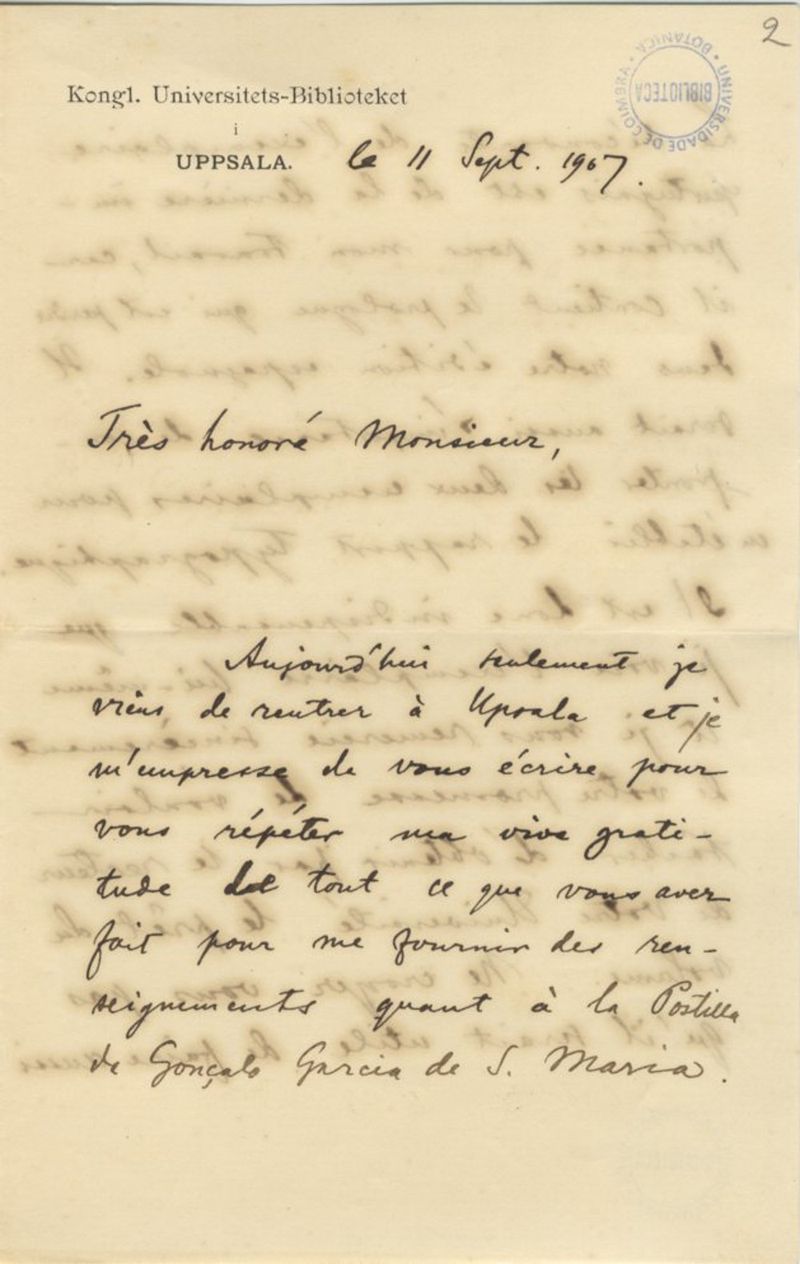 2
Kongl. Universitets-Biblioteket
i
UPPSALA. le 11 Sept. 1907.
UNIVERSIDADE DE COIMBRA · BOTANICA ·
BIBLIOTECA
Très honoré Monsieur,
Aujourd'hui seulement je
viens de rentrer à Upsala et je
m'empresse de vous écrire pour
vous répéter ma vive grati-
tude de tout ce que vous avez
fait pour me fournir des ren-
seignements quant à la Postilla
de Gonçalo Garcia de S. Maria.